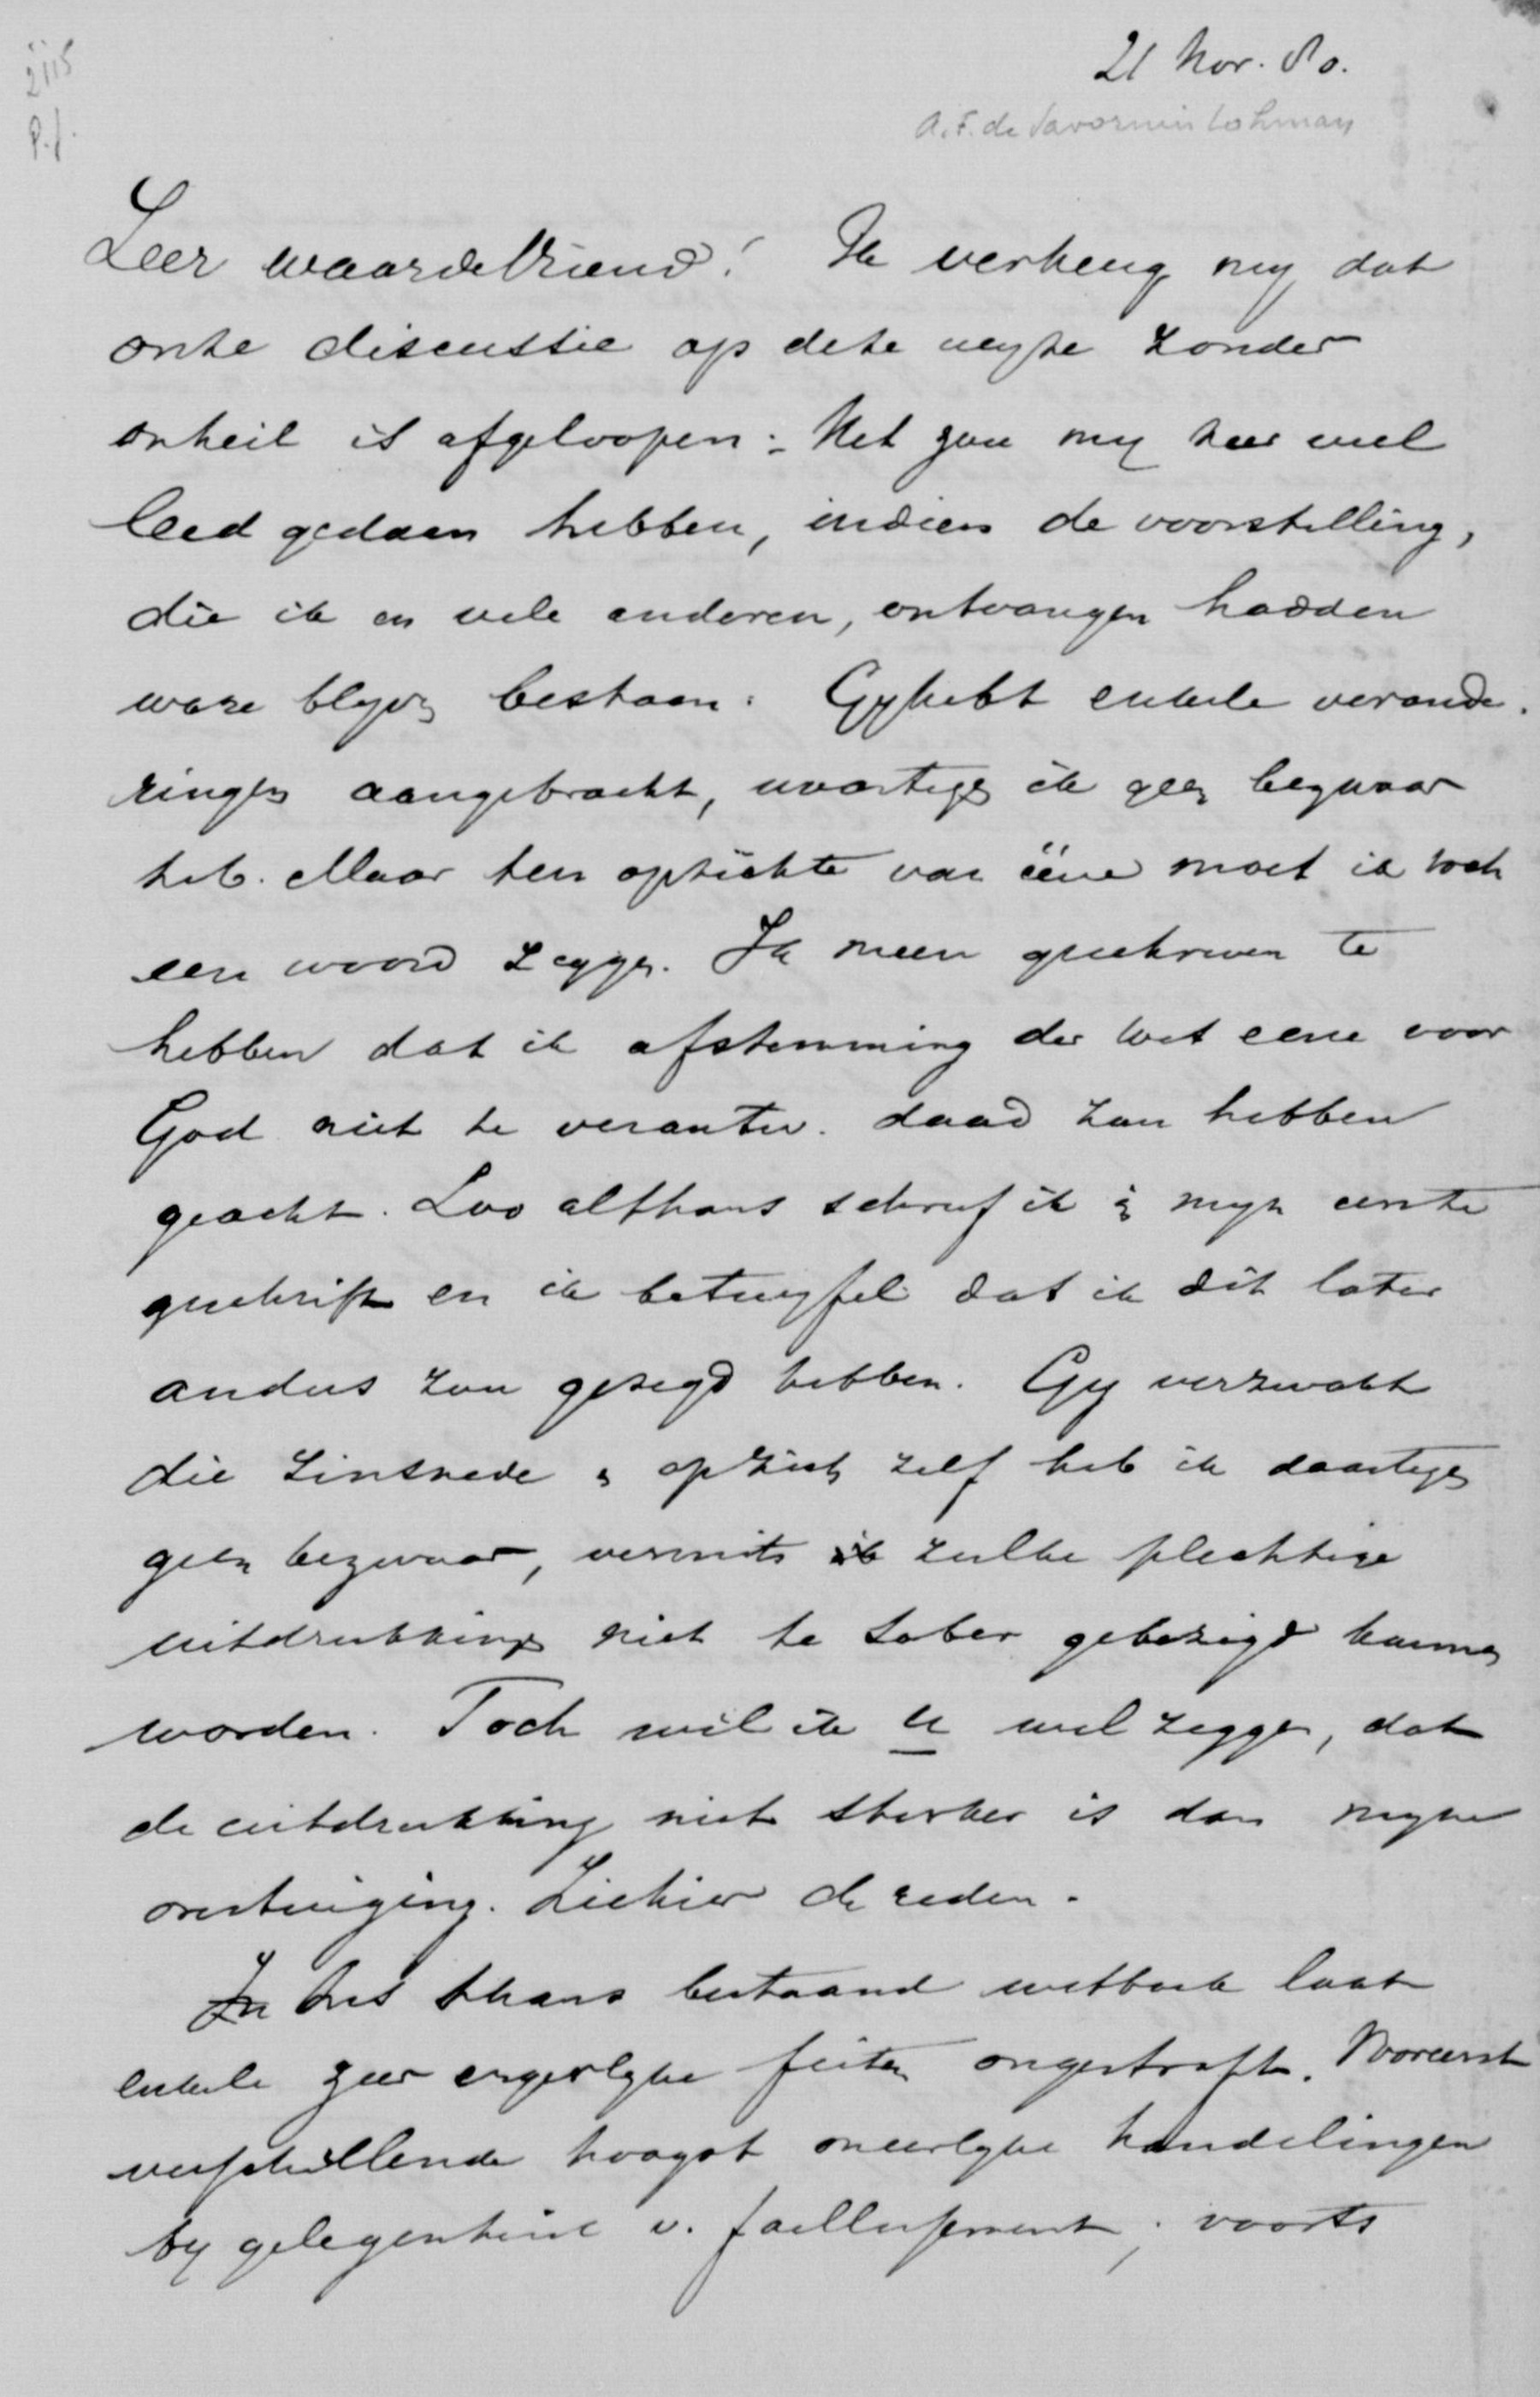 21 Nov. 80.
A. F. de Savornin Lohman
2115
P.f.
Zeer waarde Vriend! Ik verheug my dat
onze discussie op deze wyze zonder
onheil is afgeloopen. Het zou my zeer veel
leed gedaan hebben, indien de voorstelling,
die ik en vele anderen, ontvangen hadden
ware blyven bestaan. Gy hebt enkele verande-
ringen aangebracht, waartegen ik geen bezwaar
heb. Maar ten opzichte van ééne moet ik toch
een woord zeggen. Ik meen geschreven te
hebben dat ik afstemming der wet eene voor
God niet te verantw. daad zou hebben
geacht. Zoo althans schreef ik in myn eerste
geschrift en ik betwyfel dat ik dit later
anders zou gezegd hebben. Gy verzwakt
die zinsnede en op zich zelf heb ik daartegen
geen bezwaar, vermits zulke plechtige
uitdrukkingen niet te sober gebezigd kunnen
worden. Toch wil ik u wel zeggen, dat
de uitdrukking niet sterker is dan myne
overtuiging. Ziehier de reden.
In het thans bestaand wetboek laat
enkele zeer ergerlyke feiten ongestraft. Vooreerst
verschillende hoogst oneerlyke handelingen
by gelegenheid v. faillissement; voorts